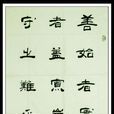 善始者實
者蓋寡豈
守之難乎